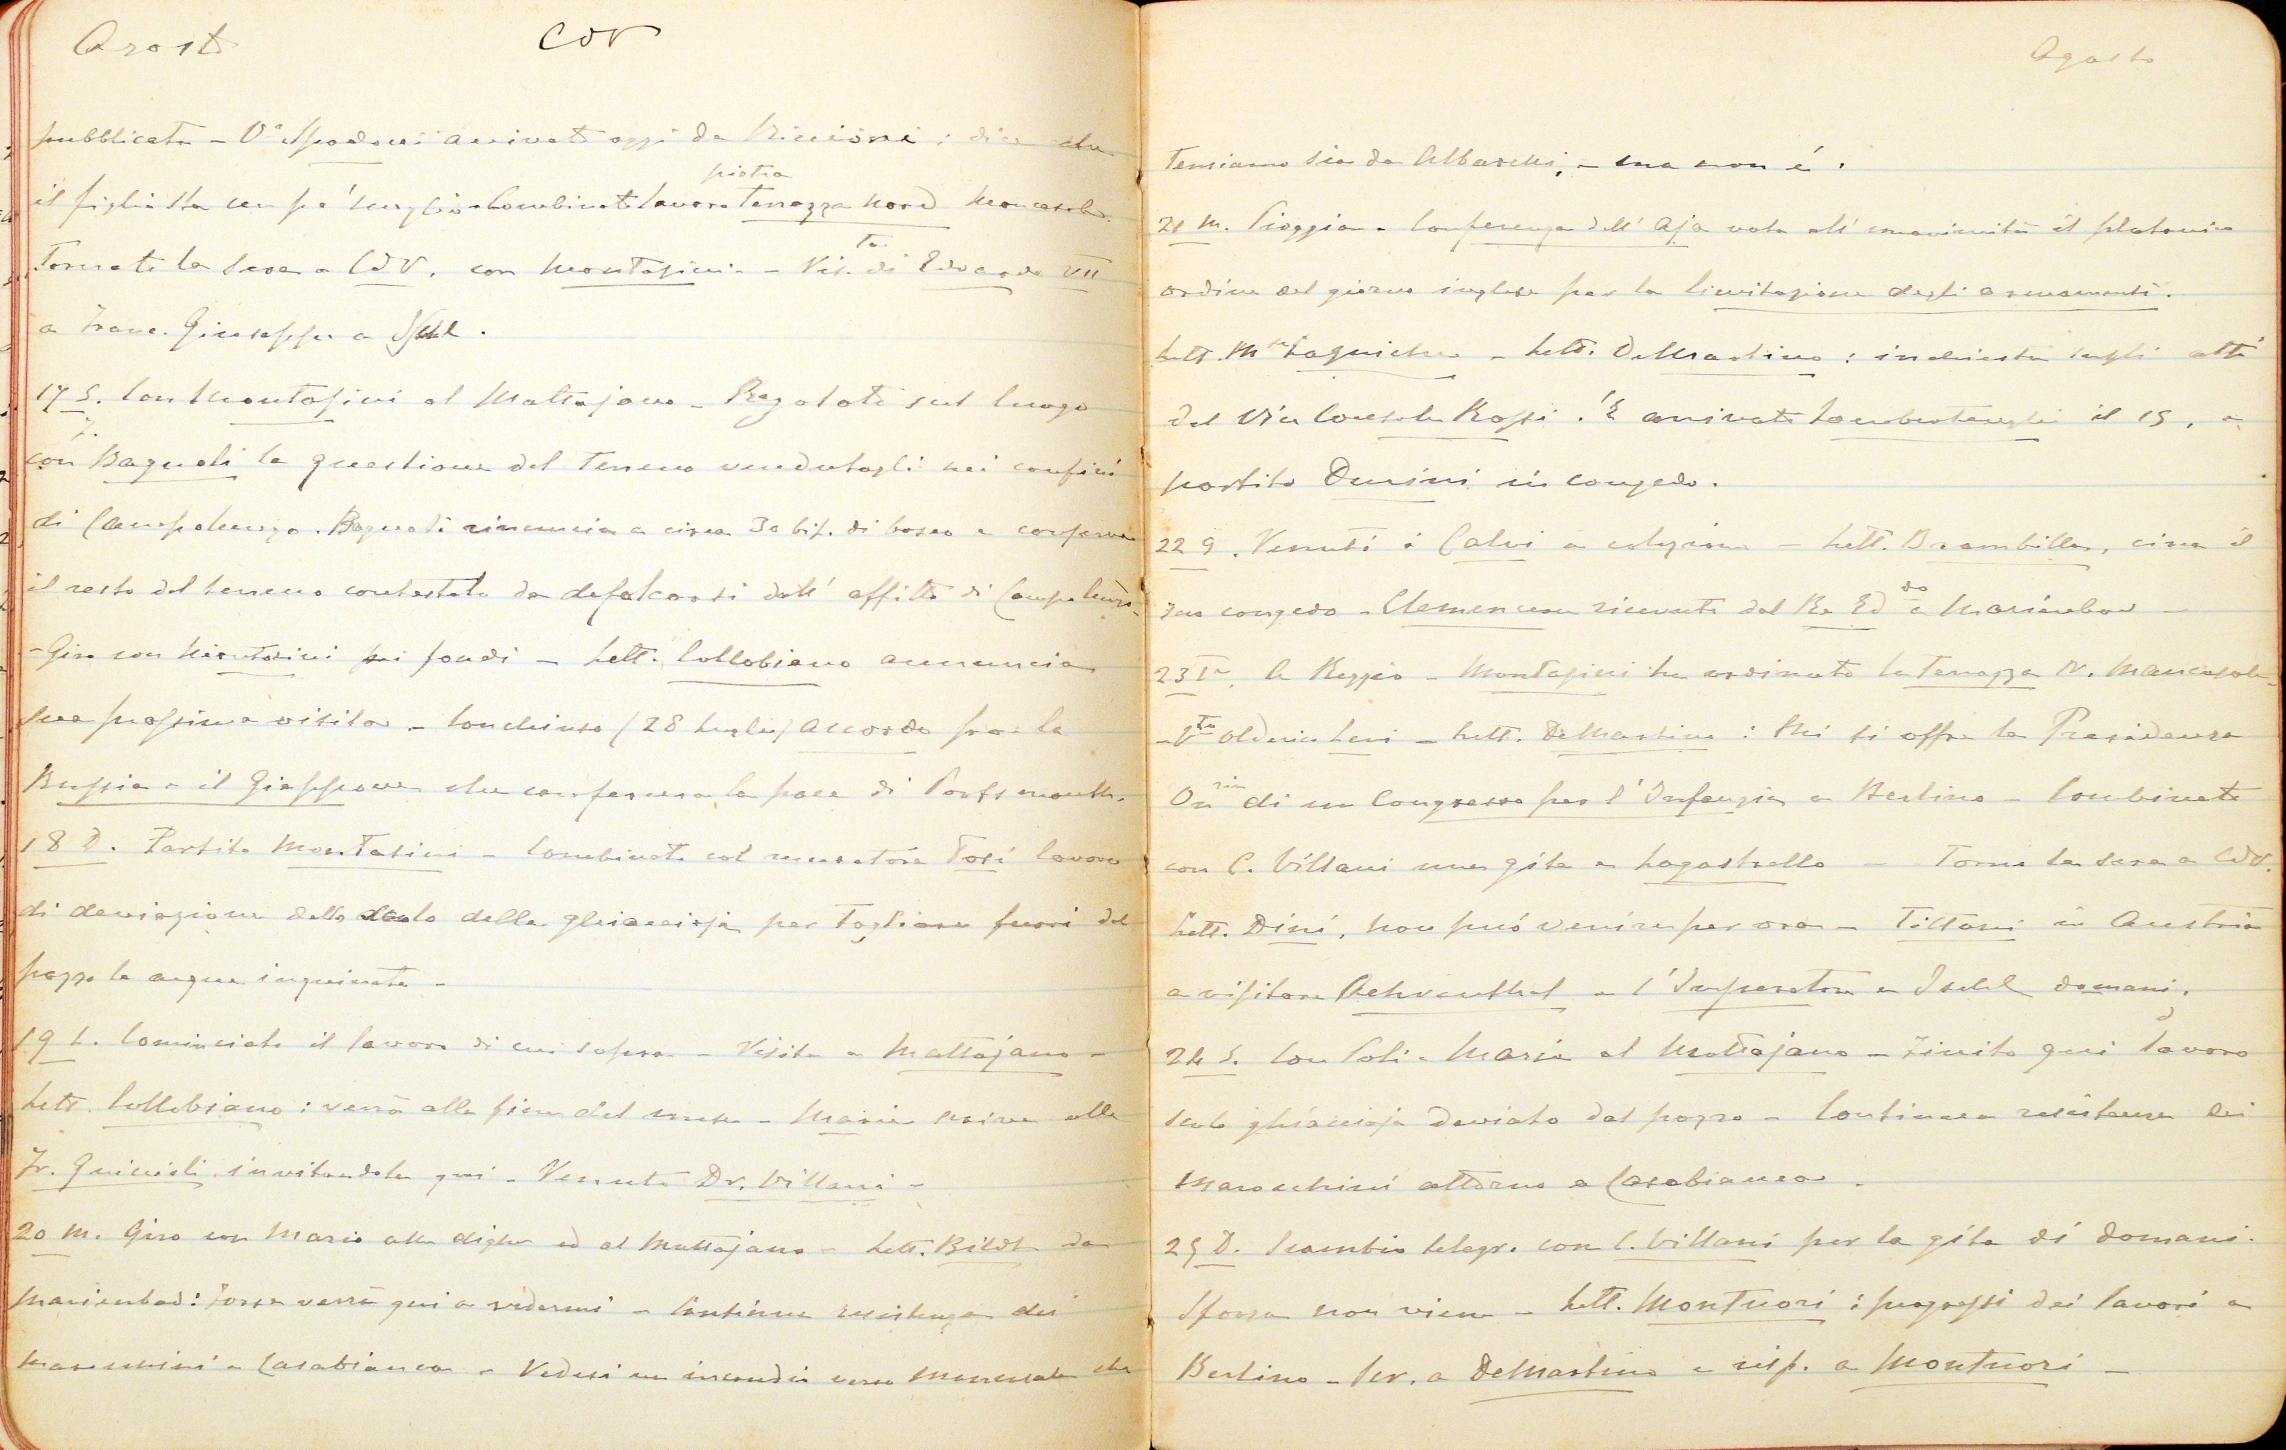 Agosto
CdV
pubblicata - Va Spadoni arrivato oggi da Riccione : dice che
il figlio sta un pò meglio - Combinato lavoro pietra terrazza Nord Mancasale.
Tornato la sera a CdV. con Montasini - Vis.ta di Edoardo VII
a Franc. Giuseppe a Ischl.
17 S. Con Montasini al Mattajano - Regolato sul luogo
con Bagnoli la questione del terreno vendutogli nei confini
di Campolungo. Bagnoli rinuncia a circa 30 bif. di bosco e conserva
il resto del terreno contestato da defalcarsi dall' affitto di Campolungo.
- Giro con Montasini pei fondi - Lett. Collobiano annuncia
sua prossima visita - Conchiuso (28 luglio) accordo fra la
Russia e il Giappone che conferma la pace di Portsmouth.
18 D. Partito Montasini - Combinato col muratore Tosi lavoro
di deviazione dello scolo della ghiacciaja per togliere fuori dal
pozzo le acque inquinate -
19 L. Cominciato il lavoro di cui sopra - Visita a Mattajano -
Lett. Collobiano : verrà alla fine del mese - Maria scrive alla
Fr. Guiccioli invitandola qui - Venuto Dr. Villani -
20 M. Giro con Mario alla diga ed al Mattajano - Lett. Bildt da
Marienbad : forse verrà qui a vedermi - Continua resistenza dei
Marocchini a Casabianca - Vedesi un incendio verso che
Agosto
Temiamo sia da Albareshi, - ma non è.
21 M. Pioggia - Conferenza dell' Aja vota all' unanimità il platonico
ordine del giorno inglese per la limitazione degli armamenti.
Lett. Mme Laguiche - Lett. DeMartino : inchiesta sugli atti
del Vice Console Rossi. È arrivato Lambertenghi il 15, e
partito Durini in congedo.
22 G. Venuti i Calvi a colazione - Lett. Brambilla, circa il
suo congedo - Clemenceau ricevuto dal Re Eddo a Marienbad -
23 Vn. A Reggio - Montasini ha ordinato la terrazza N. Mancasale
- Vta Olderico Levi - Lett. DeMartino : Mi si offre la Presidenza
Onria di un Congresso per l' Infanzia a Berlino - Combinato
con C. Villani una gita a Lagastrello - Torno la sera a CdV.
Lett. Dini, non può venire per ora - Tittoni in Austria
a visitare Aehrenthal e l' Imperatore a Ischl domani.
24 S. Con Poli e Maria al Mattajano - Finito qui lavoro
scolo ghiacciaja deviato dal pozzo - Continua resistenza dei
Marocchini attorno a Casabianca.
25 D. Scambio telegr. con C. Villani per la gita di domani.
Sforza non viene - Lett. Montuori : progressi dei lavori a
Berlino - Scr. a DeMartino e risp. a Montuori -